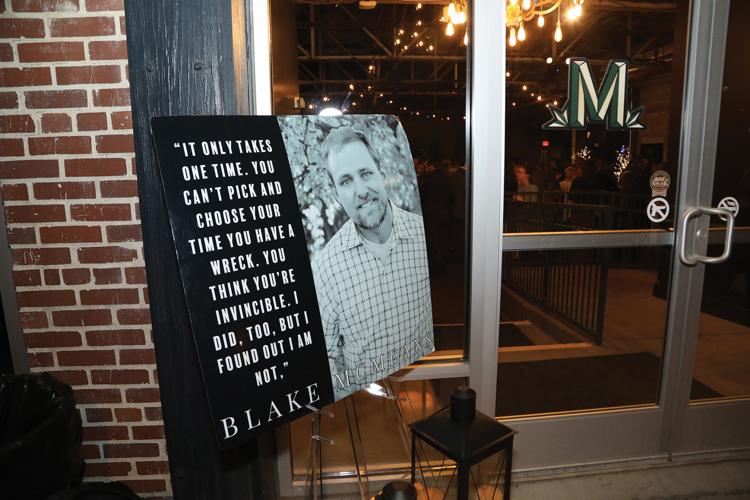 “IT ONLY TAKES
ONE TIME. YOU
CAN’T PICK AND
CHOOSE YOUR
TIME YOU HAVE A
WRECK. YOU
THINK YOU’RE
INVINCIBLE. I
DID, TOO, BUT I
FOUND OUT I AM
NOT,”
BLAKE MCMEANS
M